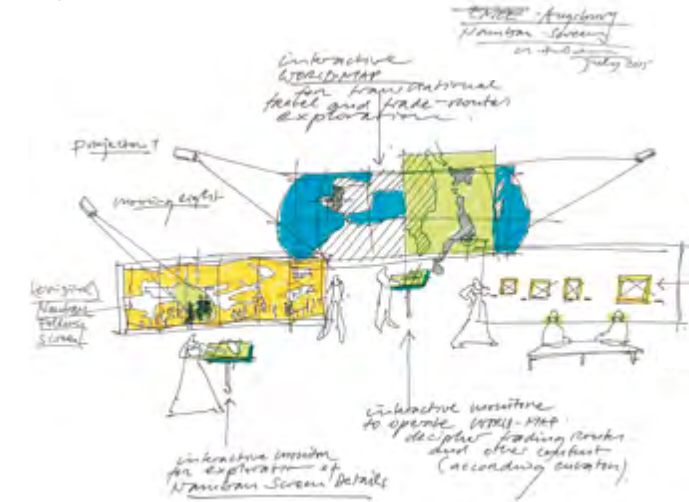 Augsburg
Nanban-Screens
July 2015
interactive
WORLD-MAP
for transnational
travel and trade-routes
exploration.
projector 1
moving light
(original)
Nanban
Folding
Screen
interactive monitor
to operate WORLD-MAP
decipher trading routes
and other content
(according curator)
interactive monitor
for exploration of
Nanban Screen Details